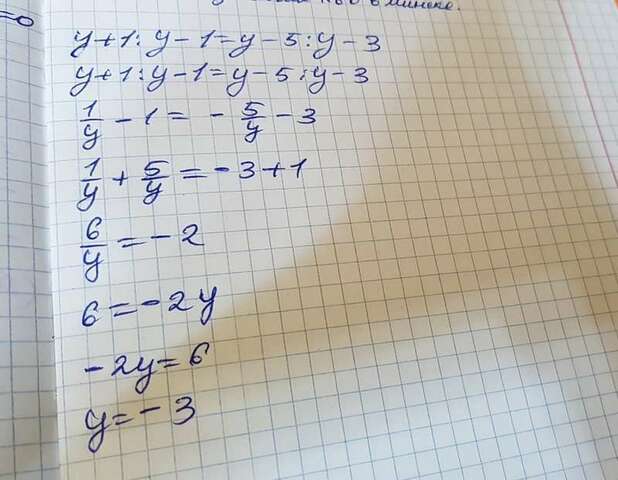 =0
минске.
y+1:y-1=y-5:y-3
y+1:y-1=y-5:y-3
1/y - 1 = - 5/y - 3
1/y + 5/y = -3+1
6/y = -2
6=-2y
-2y=6
y=-3